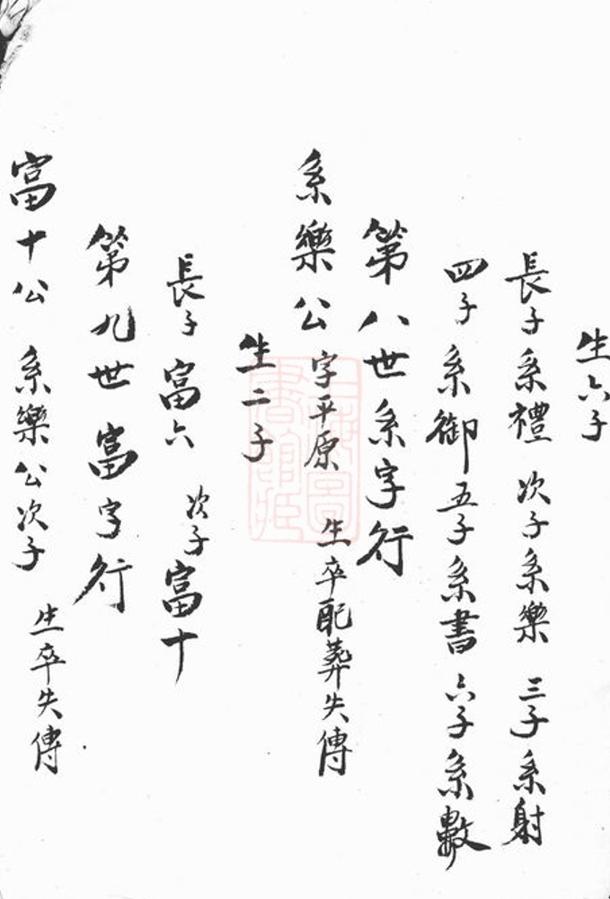 生六子
長子系禮 次子系樂 三子系射
四子系御 五子系書 六子系數
第八世系字行
系樂公 字平原 生卒配葬失傳
生二子
長子富六 次子富十
第九世富字行
富十公 系樂公次子 生卒失傳